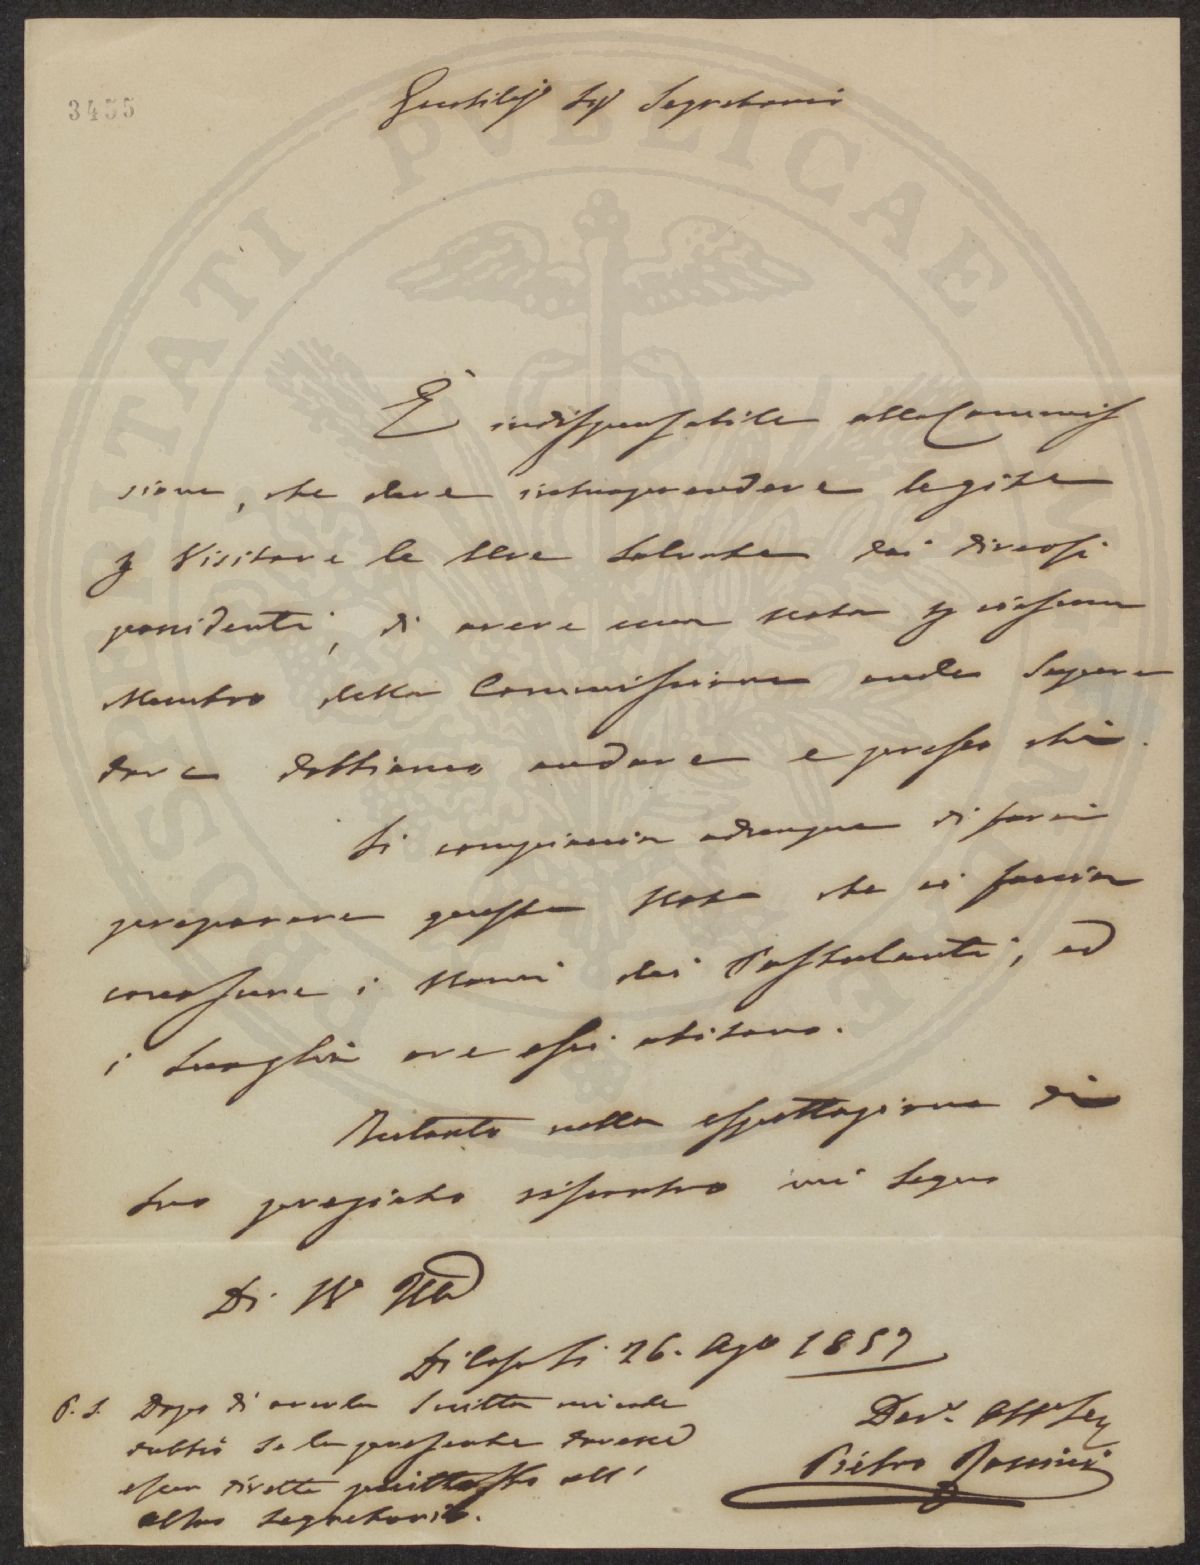 3455
Gentiliss Sig Segretario
È indispensabile alla Commis
sione, che deve intraprendere le gite
p Visitare le Uve Solvate dai diversi
possidenti, di avere una nota p ciascun
Membro della Commissione onde Sapere
dove dobbiamo andare e presso chi.
Si compiaccia adunque di farci
preparare questa Nota che ci faccia
conoscere i Nomi dei Postulanti, ed
i Luoghi ove essi abitano.
Intanto nella espettazione di
Suo pregiato riscontro mi segno
Di
Di 26. Ago 1857
P. S. Dopo di averla Scritta mi cade
dubbio se la presente dovesse
esser diretta piuttosto all'
altro Segretario.
Dev. Obb Ser
Pietro
A SPERITATI PVBLICAE